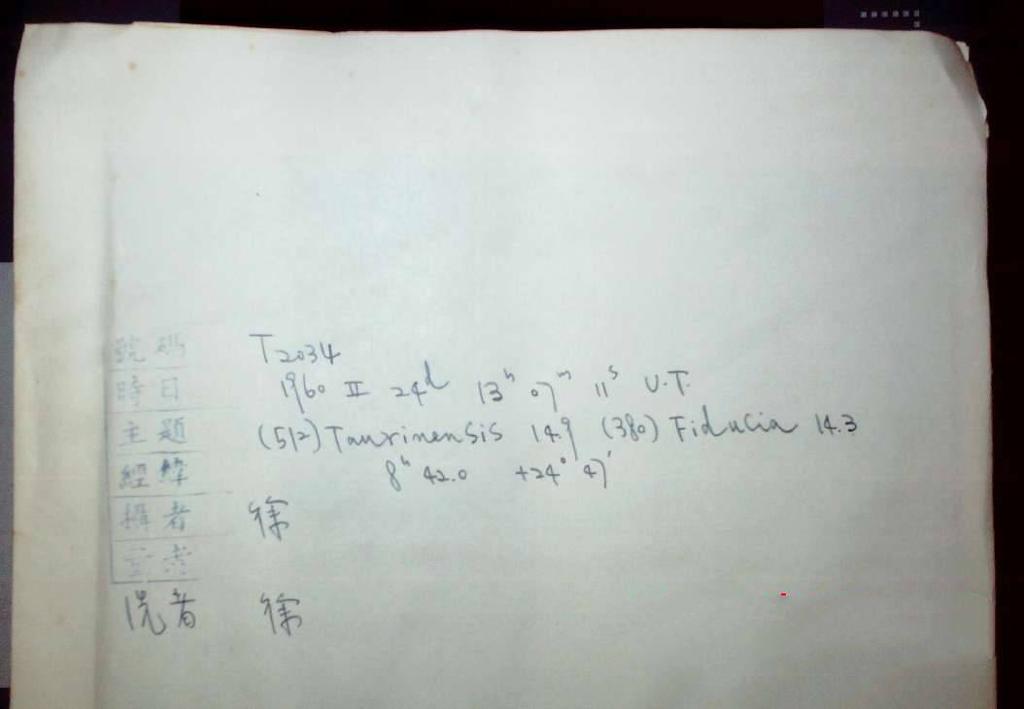 號碼 T2034
時日 1960 II 24d 13h 07m 11s U.T.
主題 (512) Taurinensis 14.9 (380) Fiducia 14.3
經緯 8h 42.0 +24° 47'
攝者 徐
洗者 徐